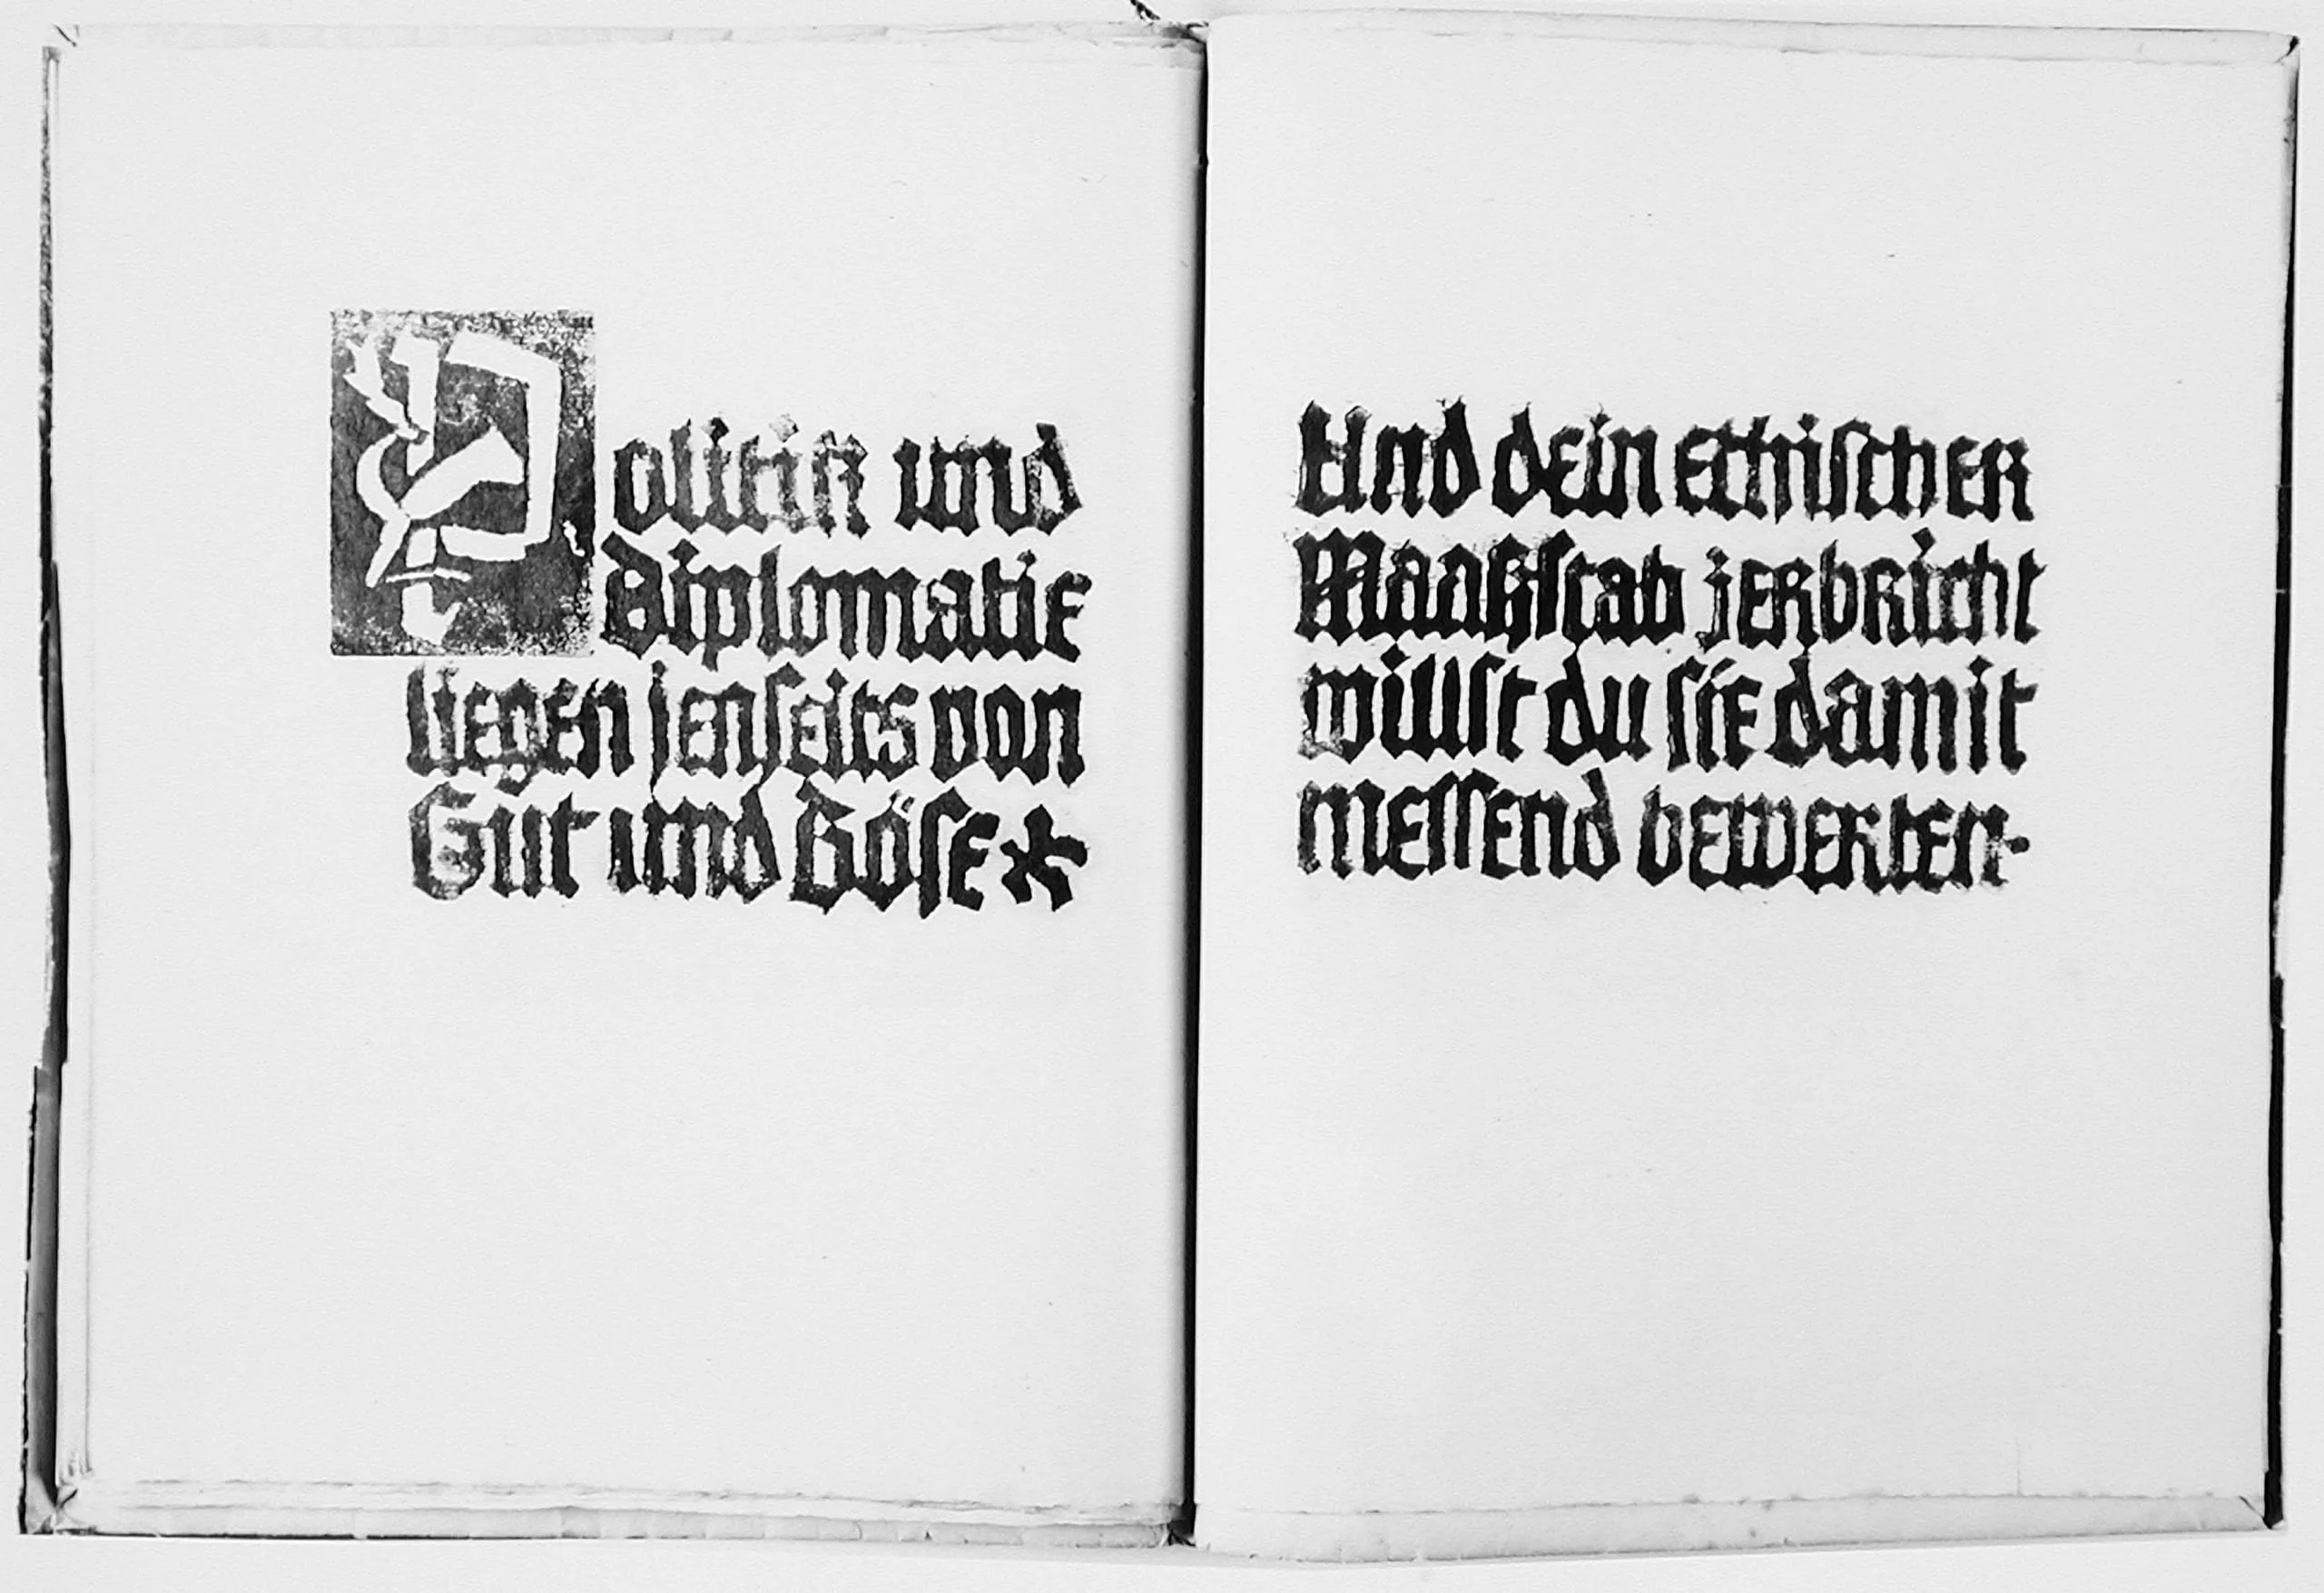 Politik und
Diplomatie
liegen jenseits von
Gut und Böse*
Und dein ethischer
Maaßstab zerbricht
willst du sie damit
messend bewerten·